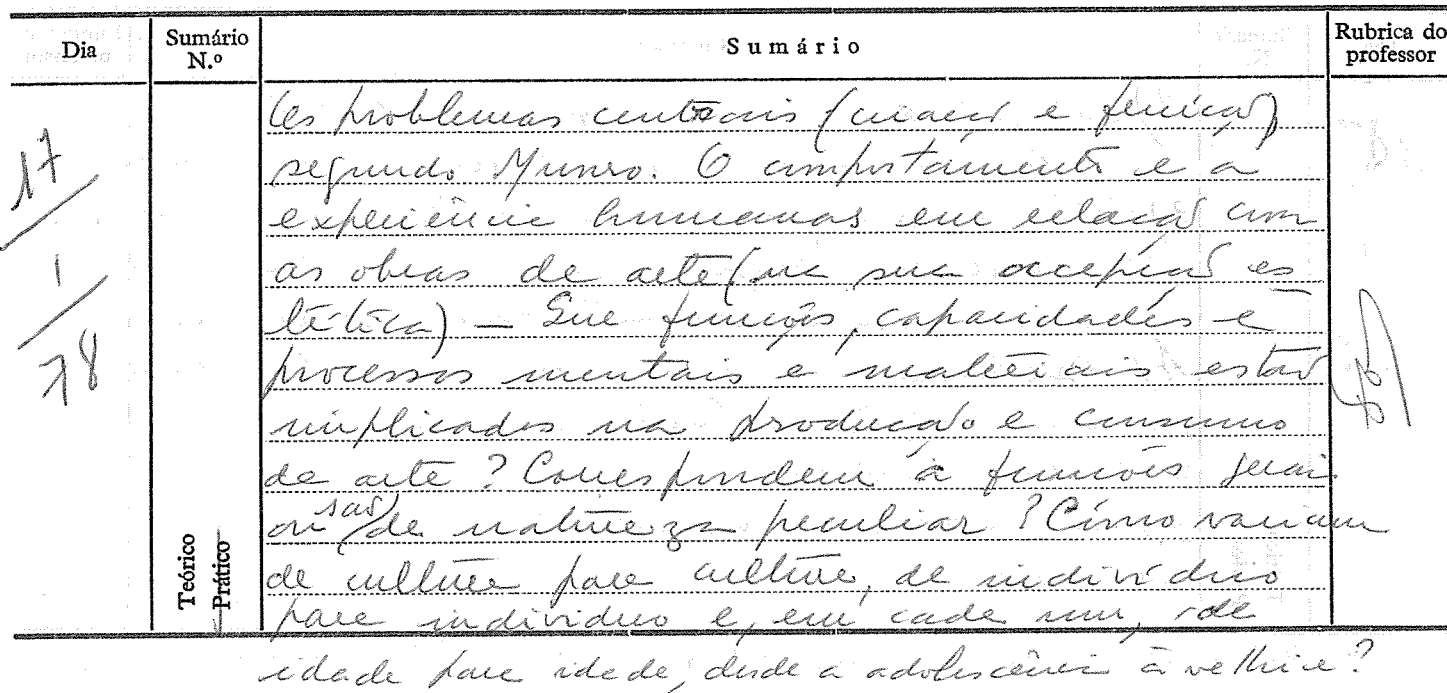 Dia
Sumário N.º
Sumário
Rubrica do professor
17/1/78
Os problemas centrais (criação e fruição)
segundo Munro. O comportamento e a
experiência humanas em relação com
as obras de arte (na sua acepção es
tética) — Que funções, capacidades e
processos mentais e materiais estão
implicados na produção e consumo
de arte? Correspondem a funções gerais
ou são de natureza peculiar? Como variam
de cultura para cultura, de indivíduo
para indivíduo e, em cada um, de
idade para idade, desde a adolescência à velhice?
Teórico
Prático